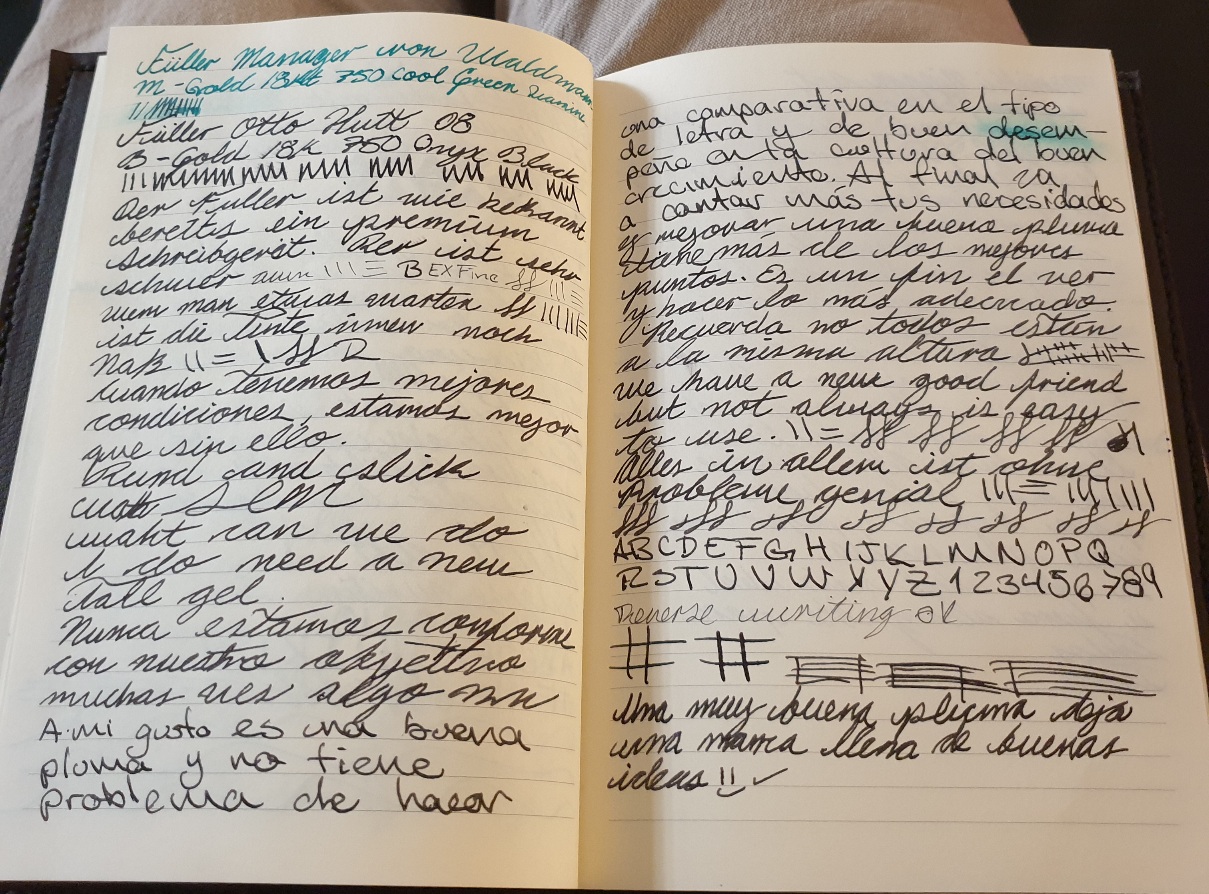 Füller Manager von Waldmann
M-Gold 18kt 750 Cool Green Diamine
Füller Otto Hutt 08
B-Gold 18k 750 Onyx Black
Der Füller ist wie bekannt
bereits ein premium
schreibgerät. Der ist sehr
schwer B EX Fine
wem man etwas warten
ist die Tinte imen noch
Naß
cuando tenemos mejores
condiciones, estamos mejor
que sin ello.
Rund and cslick
waht can we do
I do need a new
Nunca estamos conforme
con nuestro objjettivo
muchas ves algo
A mi gusto es una buena
pluma y no tiene
problema de hacer
una comparativa en el tipo
de letra y de buen desem-
peño en la cultura del buen
crecimiento. Al final va
a contar más tus necesidades
es mejorar una buena pluma
tiene más de los mejores
puntos. Es un fin el ver
y hacer lo más adecuado.
Recuerda no todos están
a la misma altura
we have a new good friend
but not always is easy
to use.
Alles in allem ist ohne
Probleme genial
ABCDEFGHIJKLMNOPQ
RSTUVWXYZ123456789
Reverse writing OK
Una muy buena pluma deja
una marca llena de buenas
ideas !!